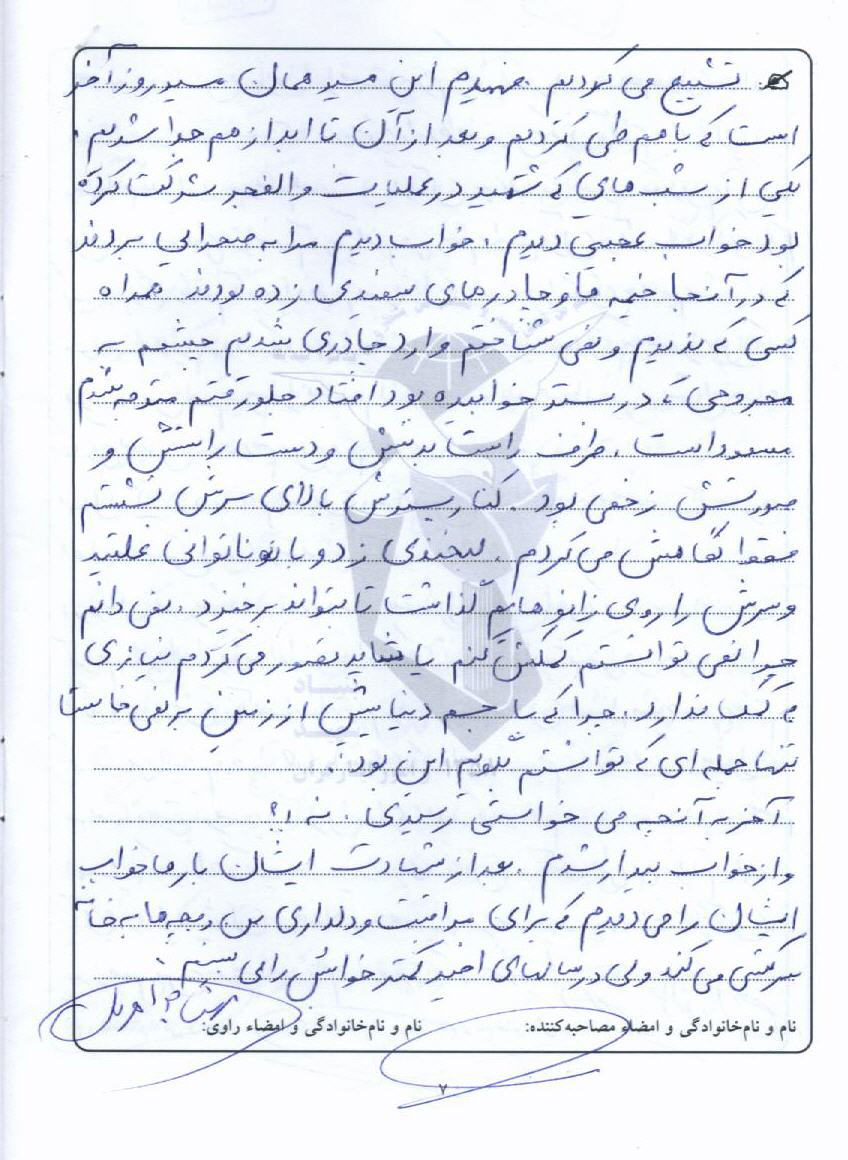 تشییع می کردیم. فهمیدم این مسیر همان مسیر روز آخر
است که با هم طی کردیم و بعد از آن تا ابد از هم جدا شدیم.
یکی از شب هایی که شهید در عملیات والفجر شرکت کرده
بود خواب عجیبی دیدم. خواب دیدم مرا به صحرایی بردند
که در آنجا خیمه ها و چادرهای سفیدی زده بودند همراه
کسی که ندیدم و نمی شناختم وارد چادری شدیم چشمم به
مجروحی که در بستر خوابیده بود افتاد جلو رفتم متوجه شدم
مسعود است. طرف راست بدنش و دست راستش و
صورتش زخمی بود. کنار بسترش بالای سرش نشستم
فقط نگاهش می کردم. لبخندی زد و با ناتوانی غلتید
و سرش را روی زانوهایم گذاشت تا بتواند برخیزد. نمی دانم
چرا نمی توانستم کمکش کنم یا شاید تصور می کردم نیازی
به کمک ندارد. چرا که با جسم دنیایش از زمین بر نمی خاست
تنها جمله ای که توانستم بگویم این بود:
آخر به آنچه می خواستی رسیدی. نه؟!
و از خواب بیدار شدم. بعد از شهادت ایشان بارها خواب
ایشان را می دیدم که برای مراقبت و دلداری من و بچه ها به خانه
سرکشی می کند ولی در سالهای اخیر کمتر خوابش را می بینم.
نام و نام خانوادگی و امضاء مصاحبه کننده: نام و نام خانوادگی و امضاء راوی:
۷